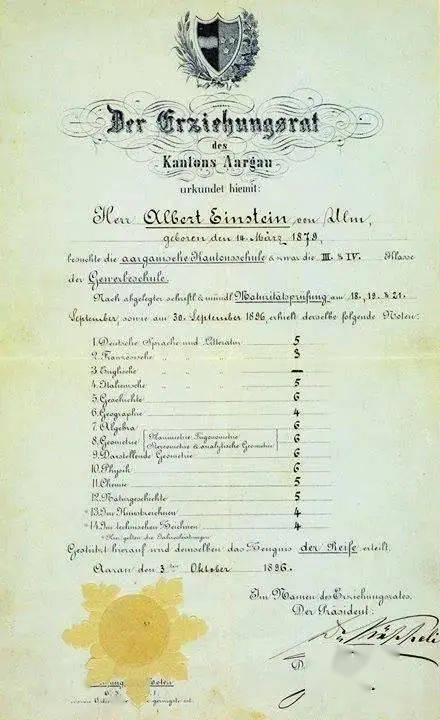 Der Erziehungsrat
des
Kantons Aargau
urkundet hiemit:
Herr Albert Einstein von Ulm,
geboren den 14. März 1879,
besuchte die aargauische Kantonsschule & zwar die III. & IV. Klasse
der Gewerbeschule.
Nach abgelegter schriftl. & mündl. Maturitätsprüfung am 18., 19. & 21.
September, sowie am 30. September 1896, erhielt derselbe folgende Noten:
1. Deutsche Sprache und Litteratur 5
2. Französische " " " 3
3. Englische " " " —
4. Italienische " " " 5
5. Geschichte 6
6. Geographie 4
7. Algebra 6
8. Geometrie (Planimetrie, Trigonometrie, Stereometrie & analytische Geometrie) 6
9. Darstellende Geometrie 6
10. Physik 6
11. Chemie 5
12. Naturgeschichte 5
*13. Im Kunstzeichnen 4
*14. Im technischen Zeichnen 4
* Hier gelten die Jahresleistungen.
Gestützt hierauf wird demselben das Zeugnis der Reife erteilt.
Aarau den 3ten Oktober 1896.
Im Namen des Erziehungsrates,
Der Präsident:
D.